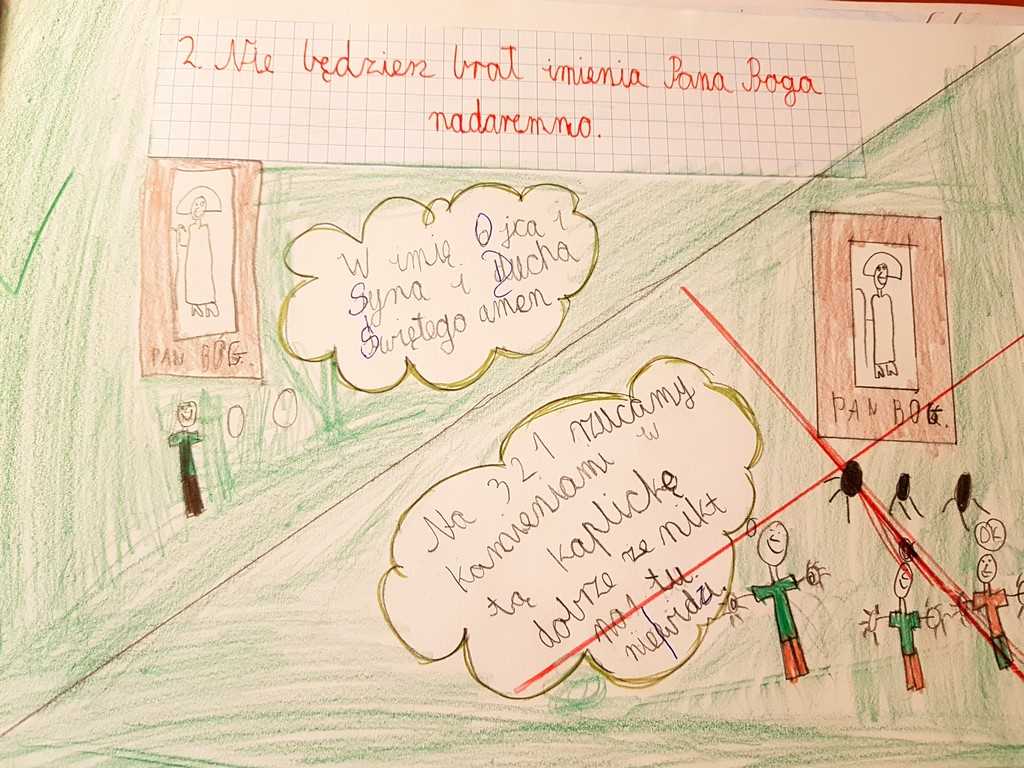 2. Nie będziesz brał imienia Pana Boga
nadaremno.
W imię Ojca i
Syna i Ducha
Świętego amen
PAN BÓG.
PAN BÓG.
Na 3 2 1 rzucamy
kamieniami w
tą kapliczkę
dobrze że nikt
nas tu
niewidzi.
OK